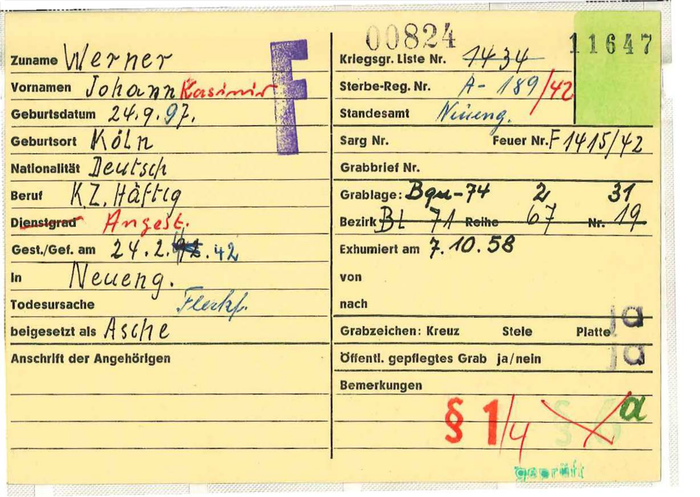 00824
11647
F
Zuname Werner
Vornamen Johann Kasimir
Geburtsdatum 24.9.97.
Geburtsort Köln
Nationalität Deutsch
Beruf KZ. Häftlg
Dienstgrad Angest.
Gest./Gef. am 24.2. 42
In Neueng.
Todesursache
beigesetzt als Asche
Anschrift der Angehörigen
Kriegsgr. Liste Nr. 1434
Sterbe-Reg. Nr. A-189/42
Standesamt Neueng.
Sarg Nr. Feuer Nr. F1415/42
Grabbrief Nr.
Grablage: 74 2 31
Bezirk BL 71 Reihe 67 Nr. 19
Exhumiert am 7.10.58
von
nach
Grabzeichen: Kreuz Stele Platte ja
Öffentl. gepflegtes Grab ja/nein ja
Bemerkungen
§ 1/4 § a
geprüft